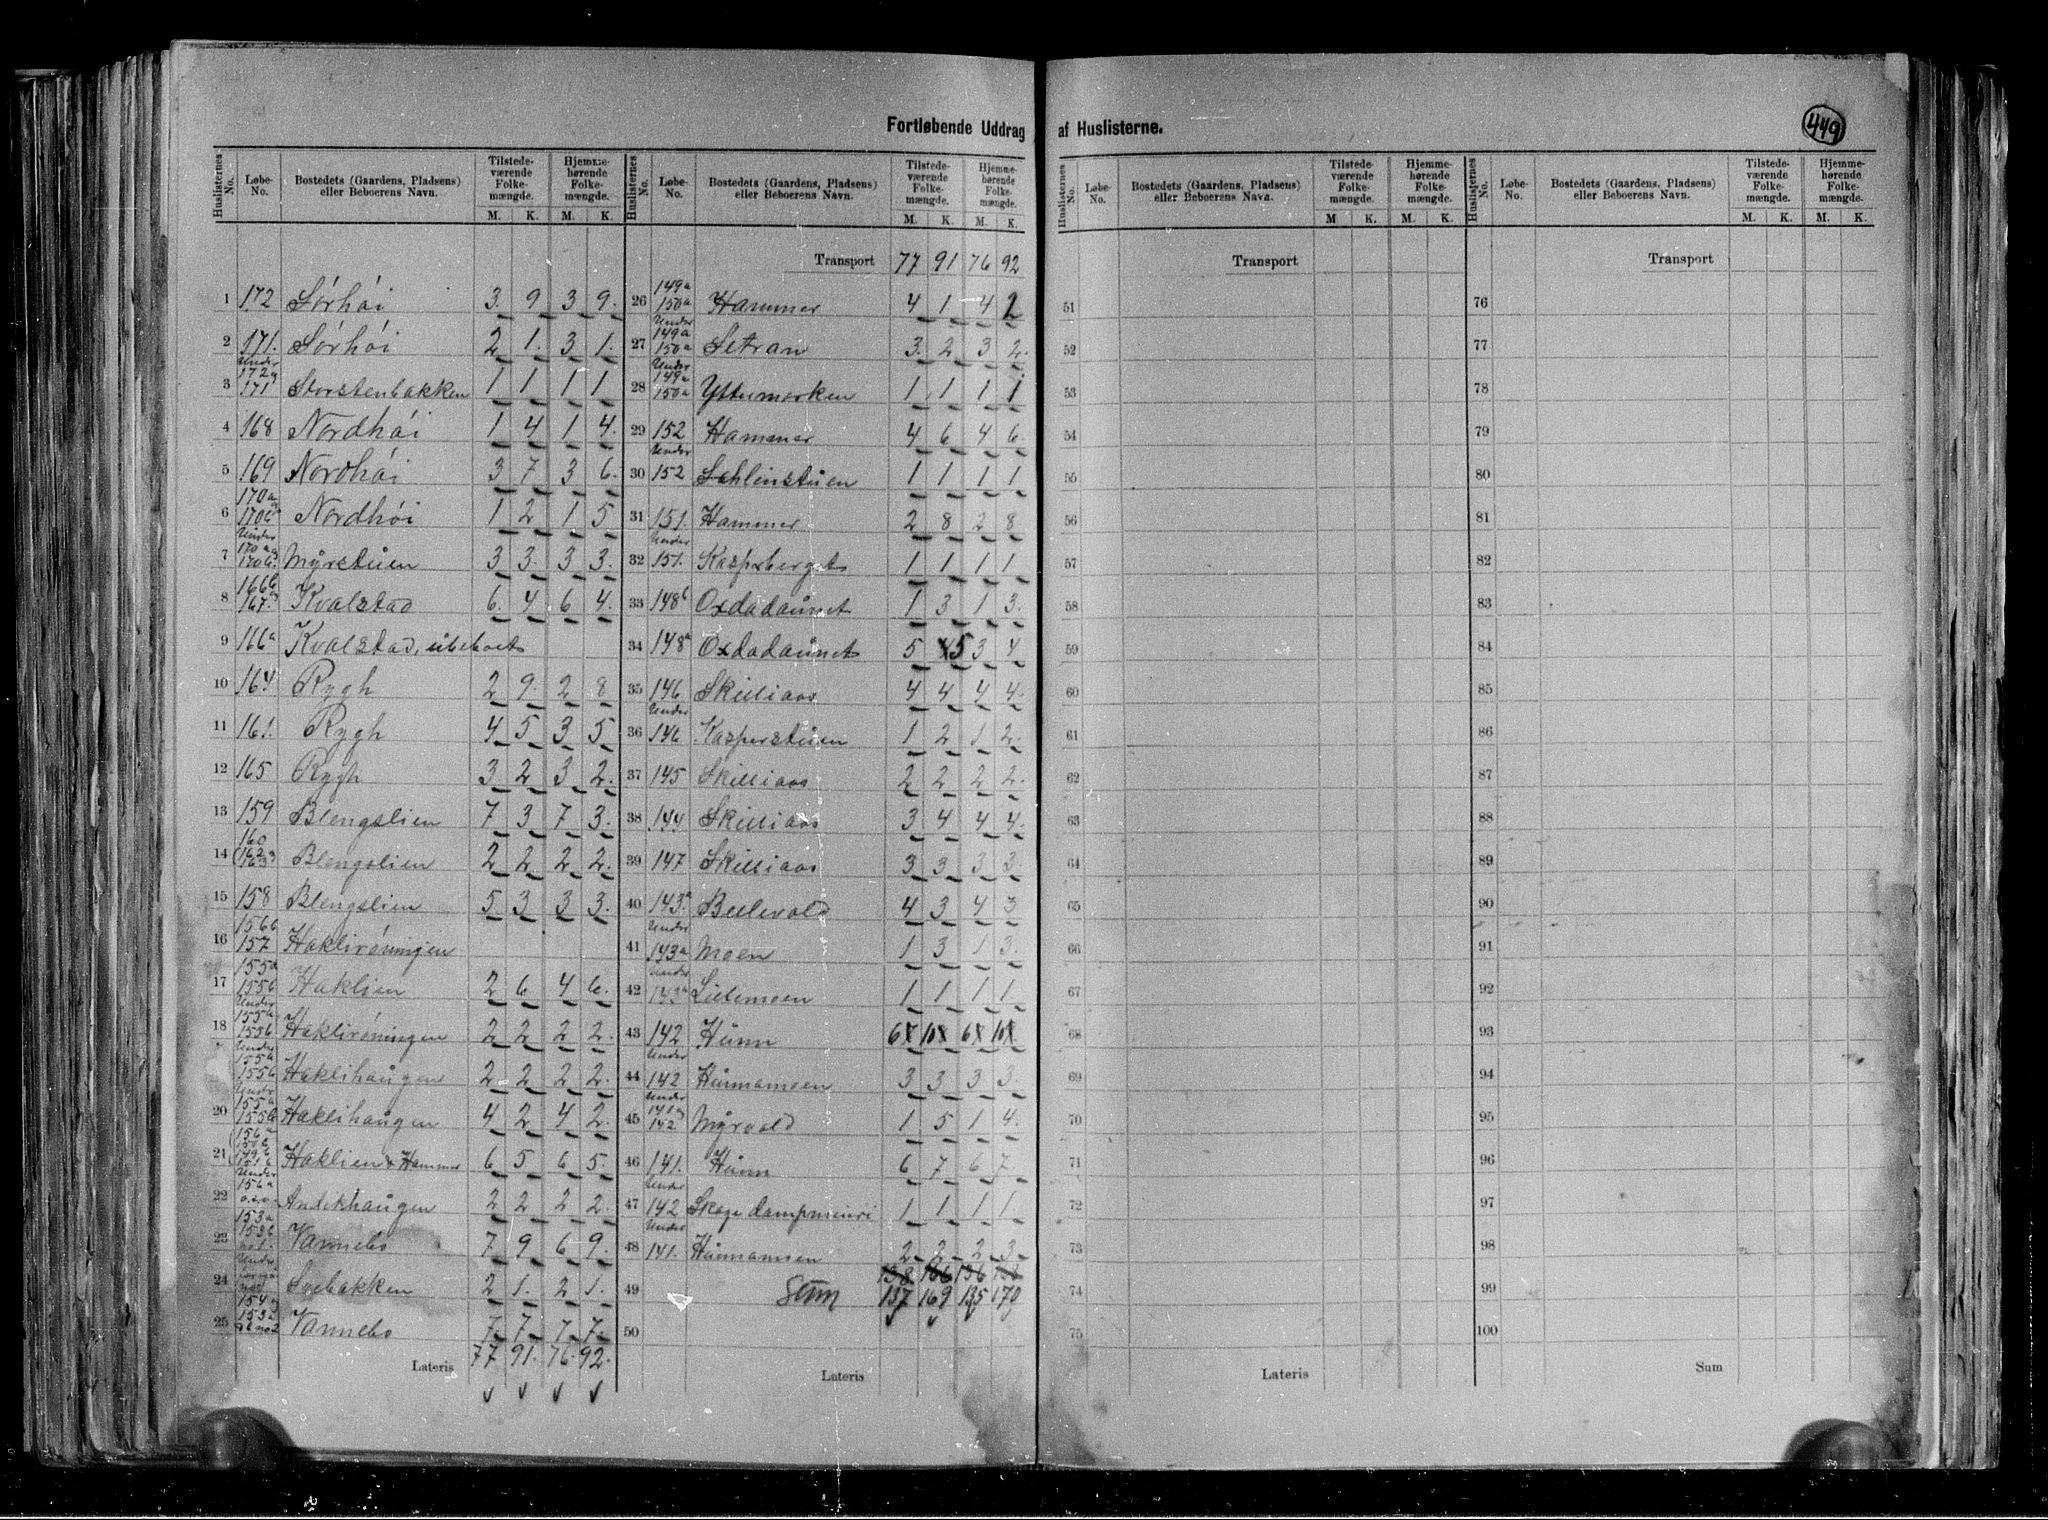 Fortløbende Uddrag af Huslisterne.
449
Huslisternes No. Løbe-No. Bostedets (Gaardens, Pladsens) eller Beboerens Navn. Tilstedeværende Folkemængde. M. K. Hjemmehørende Folkemængde. M. K.
1 172 Sørhøi 3. 9 3 9.
2 171. Sørhøi 2 1. 3 1.
3 Under 172 og 171 Storstenbakken 1 1 1 1
4 168 Nordhøi 1 4 1 4.
5 169 Nordhøi 3 7 3 6.
6 170a 170b Nordhøi 1 2 1 5
7 Under 170a og 170b. Myrstuen 3 3. 3 3.
8 166b 167. Kvalstad 6. 4 6 4.
9 166a Kvalstad, ubeboet
10 164. Rygh 2 9. 2 8
11 161. Rygh 4 5 3 5
12 165 Rygh 3 2 3 2.
13 159 Blengslien 7 3 7 3.
14 160 162 og 163 Blengslien 2 2 2 2.
15 158 Blengslien 5 3 3 3.
16 156b 157 Haklirøningen
17 155a 155b Haklien 2 6 4 6.
18 Under 155a 155b Haklirøningen 2 2 2 2.
Under 155a 155b Haklihaugen 2 2 2 2.
20 Under 155a 155b Haklihaugen 4 2 4 2.
21 156a 150b 149b 151b Haklien & Hammer 6 5 6 5.
22 Under 156a Andekhaugen 2 2 2 2.
23 153a 153b Vannebo 7 9 6 9.
24 Under Svebakken 2 1. 2 1.
25 154 Vannebo 7. 7 7 7.
Lateris 77 91. 76. 92.
Huslisternes No. Løbe-No. Bostedets (Gaardens, Pladsens) eller Beboerens Navn. Tilstedeværende Folkemængde. M. K. Hjemmehørende Folkemængde. M. K.
Transport 77 91 76 92
26 149a 150a Hammer 4 1 4 2
27 Under 149a 150a Setran 3. 2 3 2.
28 Under 149a 150a Yttermarken 1 1 1 1
29 152 Hammer 4 6 4 6.
30 Under 152 Sahlinstuen 1 1 1 1
31 151. Hammer 2 8 2 8
32 Under 151. Kasperberget 1 1 1 1
33 148b Oxdadaunet 1 3 1 3.
34 148a Oxdadaunet 5 5 3 4
35 146 Skilliaas 4 4 4 4.
36 Under 146 Kasperstuen 1 2 1 2.
37 145 Skilliaas 2 2 2 2.
38 144 Skilliaas 3 4 4 4.
39 147 Skilliaas 3 3 3 3.
40 143a Bellevold 4 3 4 3
41 Under 143a Moen 1 3 1 3.
42 Under 143a Lillemoen 1 1 1 1
43 142 Hunn 6 10 6 10
44 Under 142 Hunnamoen 3 3 3 3.
45 Under 141 og 142 Myrvold 1 5 1 4
46 141. Hunn 6 7 6 7.
47 Under 142 Skage dampmeieri 1 1 1 1
48 Under 141. Hunnamoen 2 2 2 3.
138 166 136 168
49 Sum 137 169 135 170
50
Lateris
Huslisternes No. Løbe-No. Bostedets (Gaardens, Pladsens) eller Beboerens Navn. Tilstedeværende Folkemængde. M. K. Hjemmehørende Folkemængde. M. K.
Transport
51
52
53
54
55
56
57
58
59
60
61
62
63
64
65
66
67
68
69
70
71
72
73
74
75
Lateris
Huslisternes No. Løbe-No. Bostedets (Gaardens, Pladsens) eller Beboerens Navn. Tilstedeværende Folkemængde. M. K. Hjemmehørende Folkemængde. M. K.
Transport
76
77
78
79
80
81
82
83
84
85
86
87
88
89
90
91
92
93
94
95
96
97
98
99
100
Sum